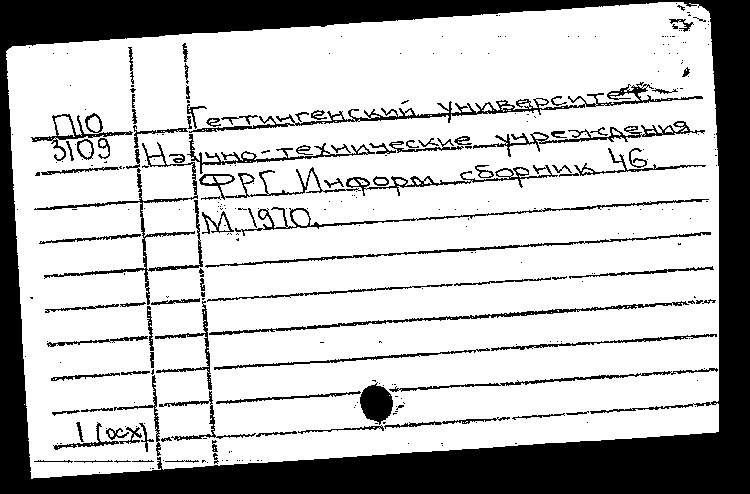 П10
3109
Геттингенский университет.
Научно-технические учреждения
ФРГ. Информ. сборник 46.
М. 1970.
1 (осх)